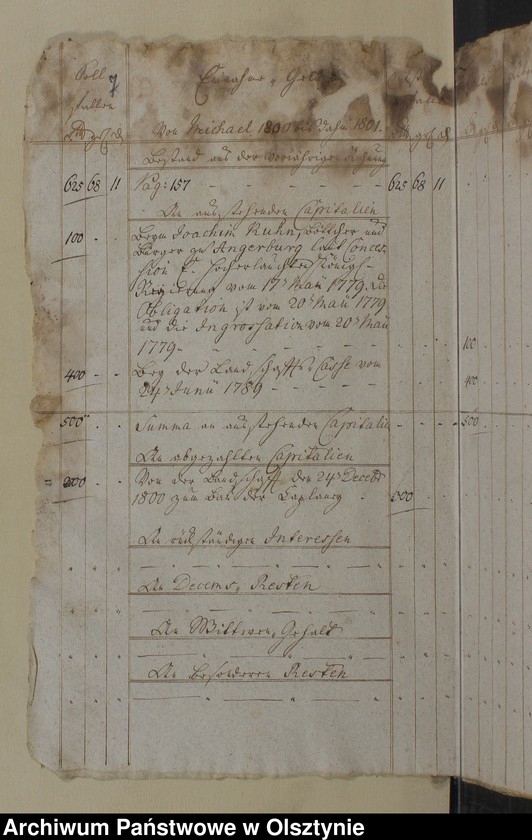 Soll
9
Einnahme, Geld
Von Michael 1800 bis dahin 1801.
Bestand aus der vorjährigen Rechnung
625 68 11 Pag: 157 - - - - - 625 68 11
An ausstehenden Capitalien
100 - - Beym Joachim Kuhn, Böttcher und
Bürger zu Angerburg laut Conces-
sion E. Hocherlauchten Königl-
Regierung vom 17t Maii 1779. Die
Obligation ist vom 20t Maii 1779
und die Ingrossation vom 20t Maii
1779 - - - - - 100
400 - - Bey der Landschafts Casse vom
24t Junii 1789 - - - - 400
500 - - Summa an ausstehenden Capitalien - - - 500
An abgezahlten Capitalien
200 - - Von der Landschaft den 24t Decembr
1800 zum Bau der Caplaney
An rückständigen Interessen
An Decems, Resten
An Wittwen, Gehalt
An besonderen Resten
Archiwum Państwowe w Olsztynie